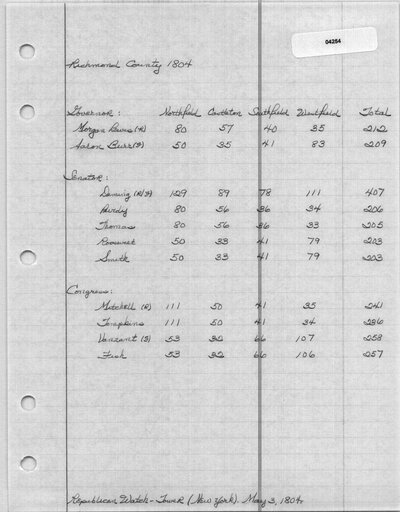 04254
Richmond County 1804
Governor: Northfield Castleton Southfield Westfield Total
Morgan Lewis (R) 80 57 40 35 212
Aaron Burr (F) 50 35 41 83 209
Senator:
Denning (R/F) 129 89 78 111 407
Purdy 80 56 36 34 206
Thomas 80 56 36 33 205
50 33 41 79 203
Smith 50 33 41 79 203
Congress:
Mitchell (R) 111 50 41 35 241
Tompkins 111 50 41 34 236
Vanzant (F) 53 32 66 107 258
Fish 53 32 66 106 257
Republican Watch-Tower (New York). May 3, 1804.